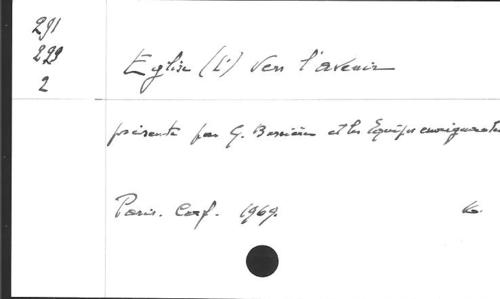 291
299
2
Eglise (L') vers l'avenir
présenté par G. Bessière et les Equipes enseignantes
Paris. Cerf. 1969.